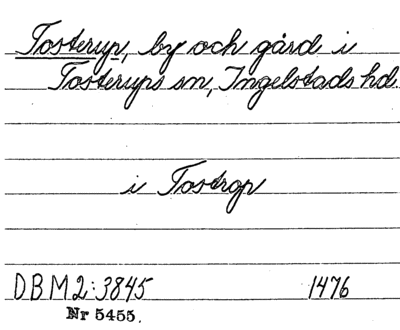 Tosterup, by och gård i
Tosterups sn, Ingelstads hd.
i Tostrop
DBM2:3845 1476
Nr 5455.